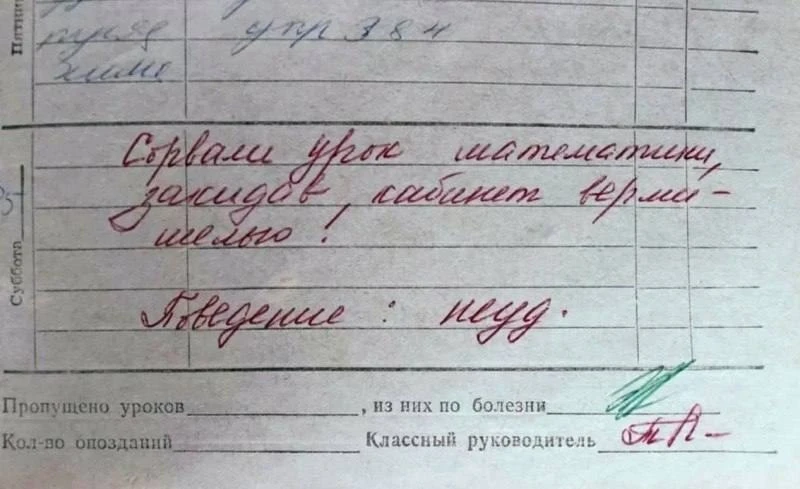 Пятниц
упр 384
Суббота
Сорвали урок математики,
закидав, кабинет верми-
шелью!
Поведение: неуд.
Пропущено уроков, из них по болезни
Кол-во опозданий Классный руководитель